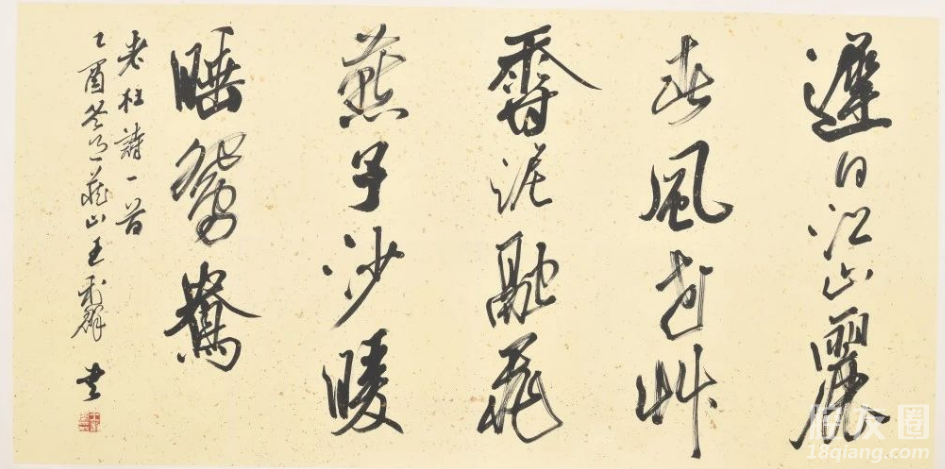 遲日江山麗
春風花艸
香泥融飛
燕子沙暖
睡鴛鴦
老杜詩一首
乙酉山王群書
友圈
18qiang.com